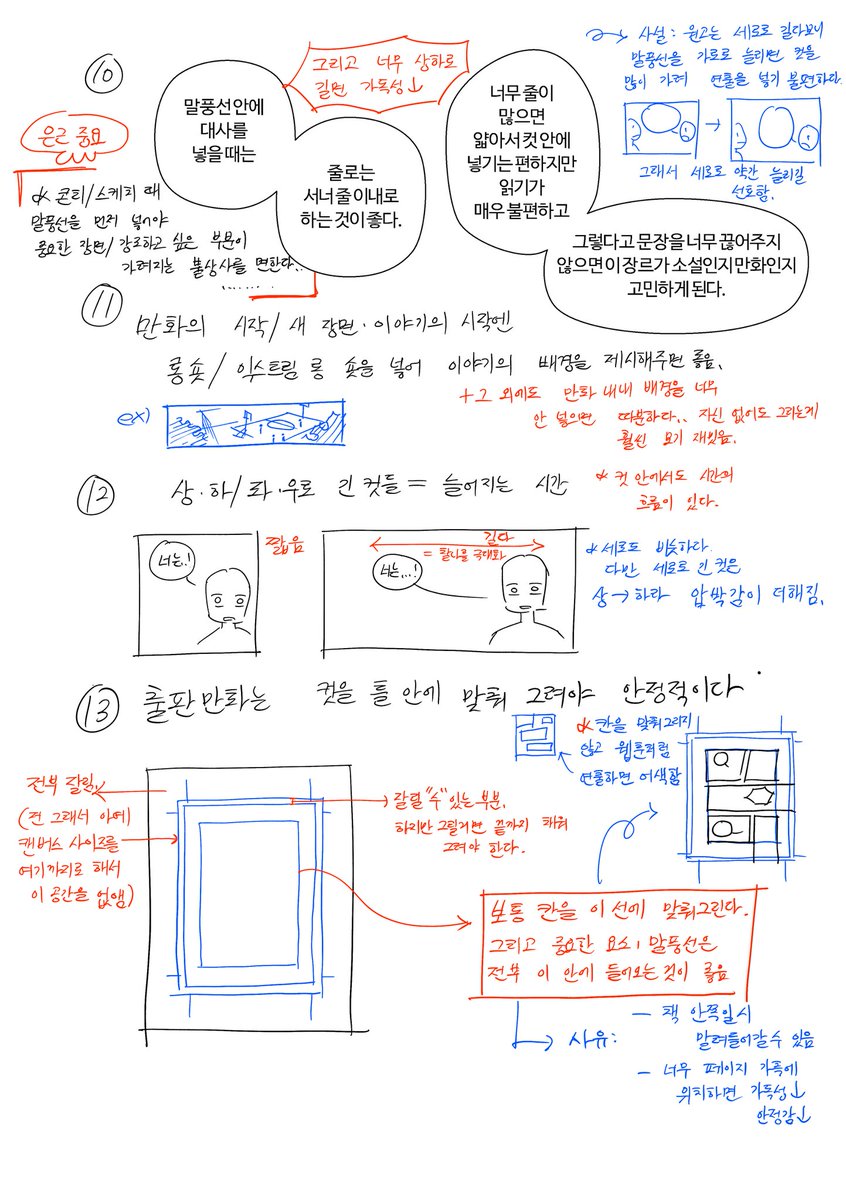 ⑩
은근 중요
말풍선 안에
대사를
넣을 때는
그리고 너무 상하로
길면 가독성↓
줄로는
서너 줄 이내로
하는 것이 좋다.
너무 줄이
많으면
얇아서 컷 안에
넣기는 편하지만
읽기가
매우 불편하고
그렇다고 문장을 너무 끊어주지
않으면 이 장르가 소설인지 만화인지
고민하게 된다.
사설: 원고는 세로로 길다보니
말풍선을 가로로 늘리면 컷을
많이 가려 연출을 넣기 불편하다.
→
그래서 세로로 약간 늘리길
선호함.
* 콘티/스케치 때
말풍선을 먼저 넣어야
중요한 장면/강조하고 싶은 부분이
가려지는 불상사를 면한다..
........
⑪
만화의 시작/새 장면·이야기의 시작엔
롱숏/익스트림 롱 숏을 넣어 이야기의 배경을 제시해주면 좋음.
+그 외에도 만화 내내 배경을 너무
안 넣으면 따분하다.. 자신 없어도 그리는게
훨씬 보기 재밌음.
ex)
⑫
상·하/좌·우로 긴 컷들 = 늘어지는 시간
* 컷 안에서도 시간의
흐름이 있다.
너는..!
짧음
길다
= 찰나를 극대화
너는...!
* 세로도 비슷하다.
다만 세로로 긴 컷은
상→하라 압박감이 더해짐.
⑬ 출판만화는 컷을 틀 안에 맞춰 그려야 안정적이다.
* 칸을 맞춰그리지
않고 웹툰처럼
연출하면 어색함
전부 잘림.
(전 그래서 아예
캔버스 사이즈를
여기까지로 해서
이 공간을 없앰)
잘릴 "수" 있는 부분.
하지만 그릴거면 끝까지 채워
그려야 한다.
보통 칸을 이 선에 맞춰그린다.
그리고 중요한 요소, 말풍선은
전부 이 안에 들어오는 것이 좋음
사유:
- 책 안쪽일시
말려들어갈 수 있음
- 너무 페이지 가쪽에
위치하면 가독성↓
안정감↓